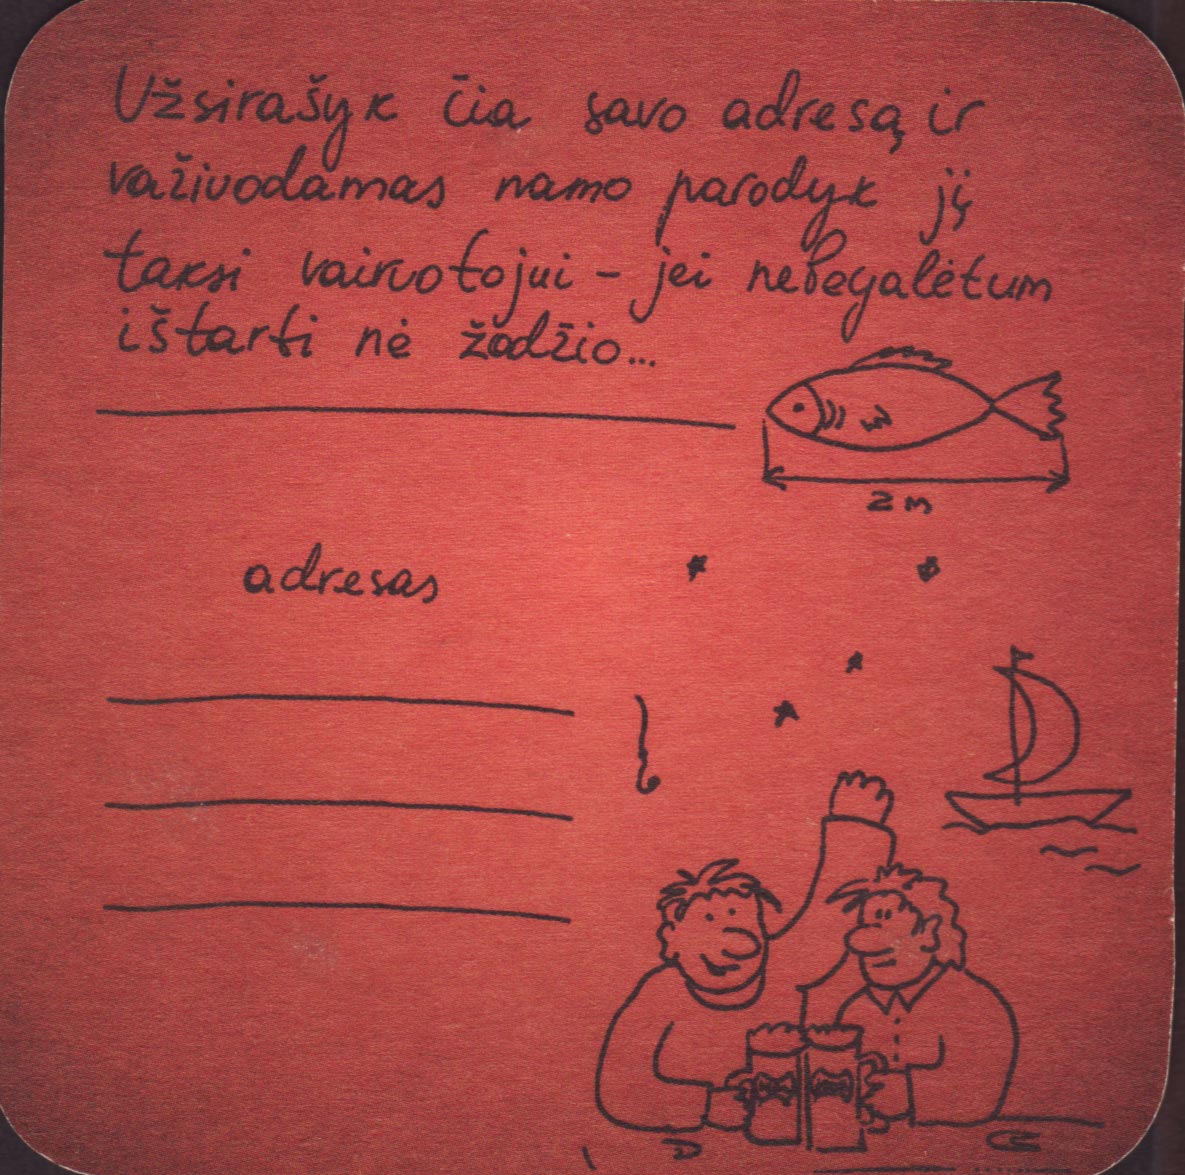 Užsirašyk čia savo adresą ir
važiuodamas namo parodyk jį
taksi vairuotojui – jei nebegalėtum
ištarti nė žodžio...
2 m
adresas